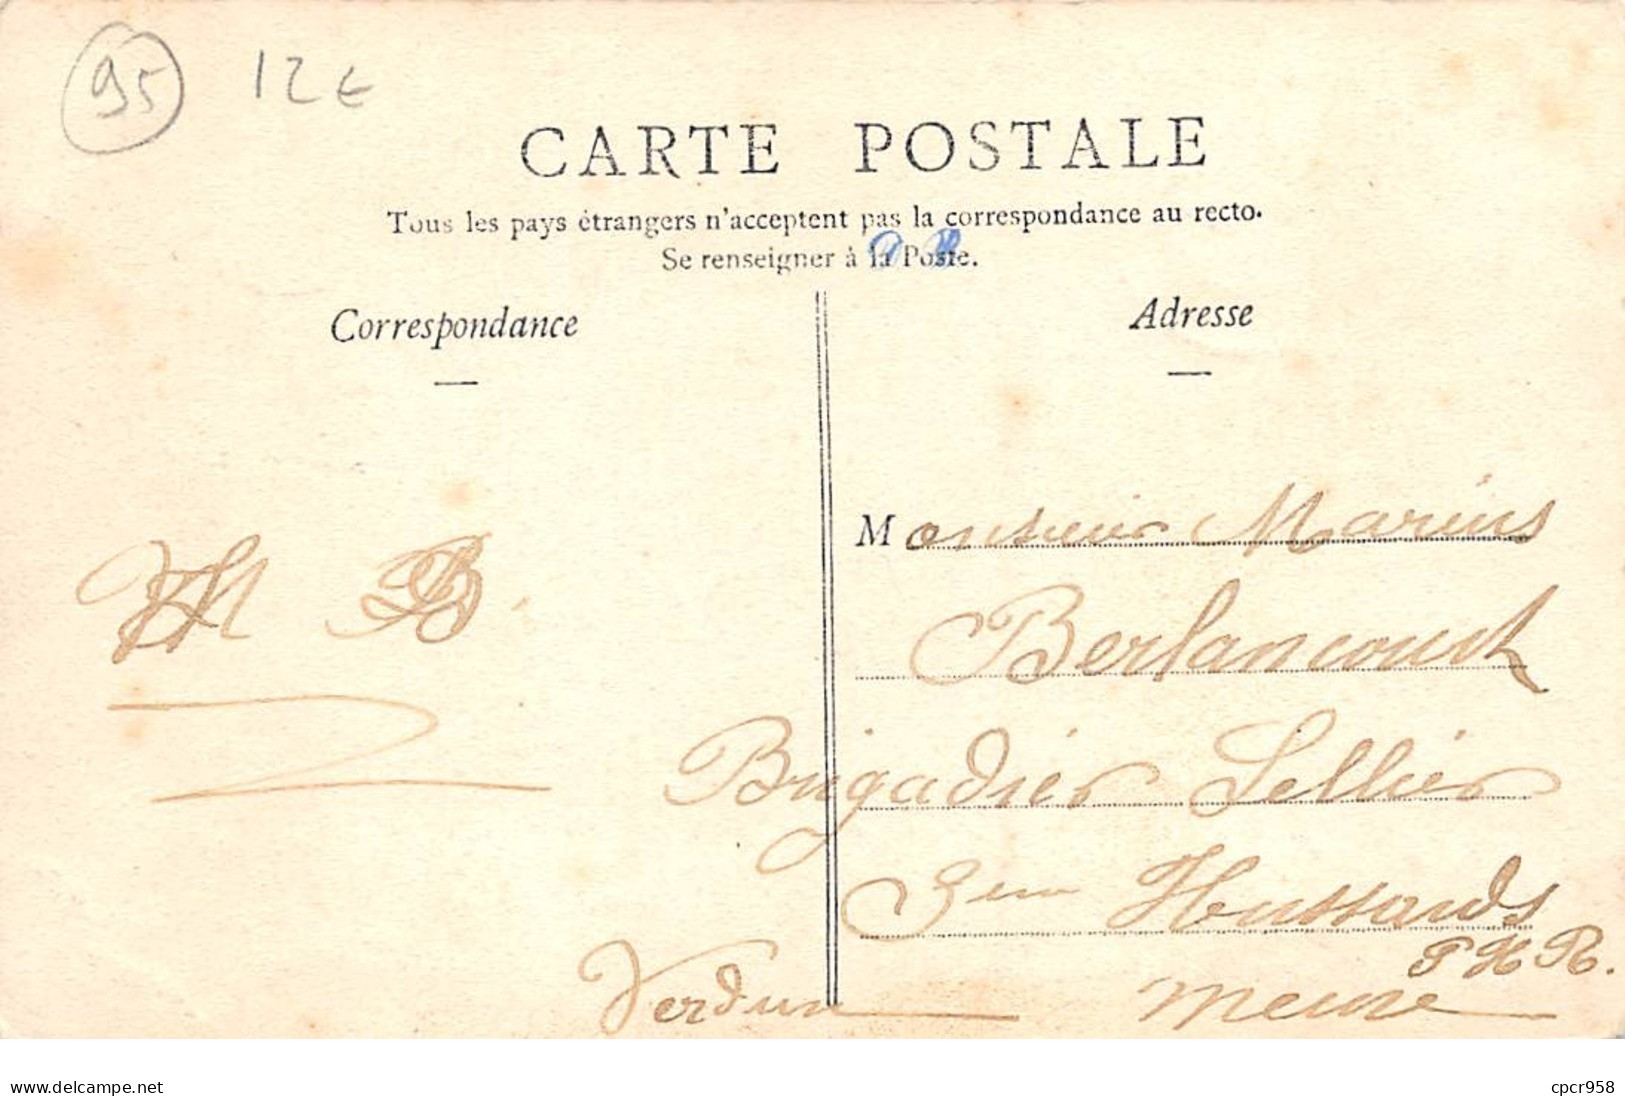 95 12€
CARTE POSTALE
Tous les pays étrangers n'acceptent pas la correspondance au recto.
Se renseigner à la Poste.
Correspondance
Adresse
Monsieur Marius
Berlancourt
Brigadier Sellier
3em Hussards
P H R.
Verdun Meuse
B.
www.delcampe.net
cpcr958